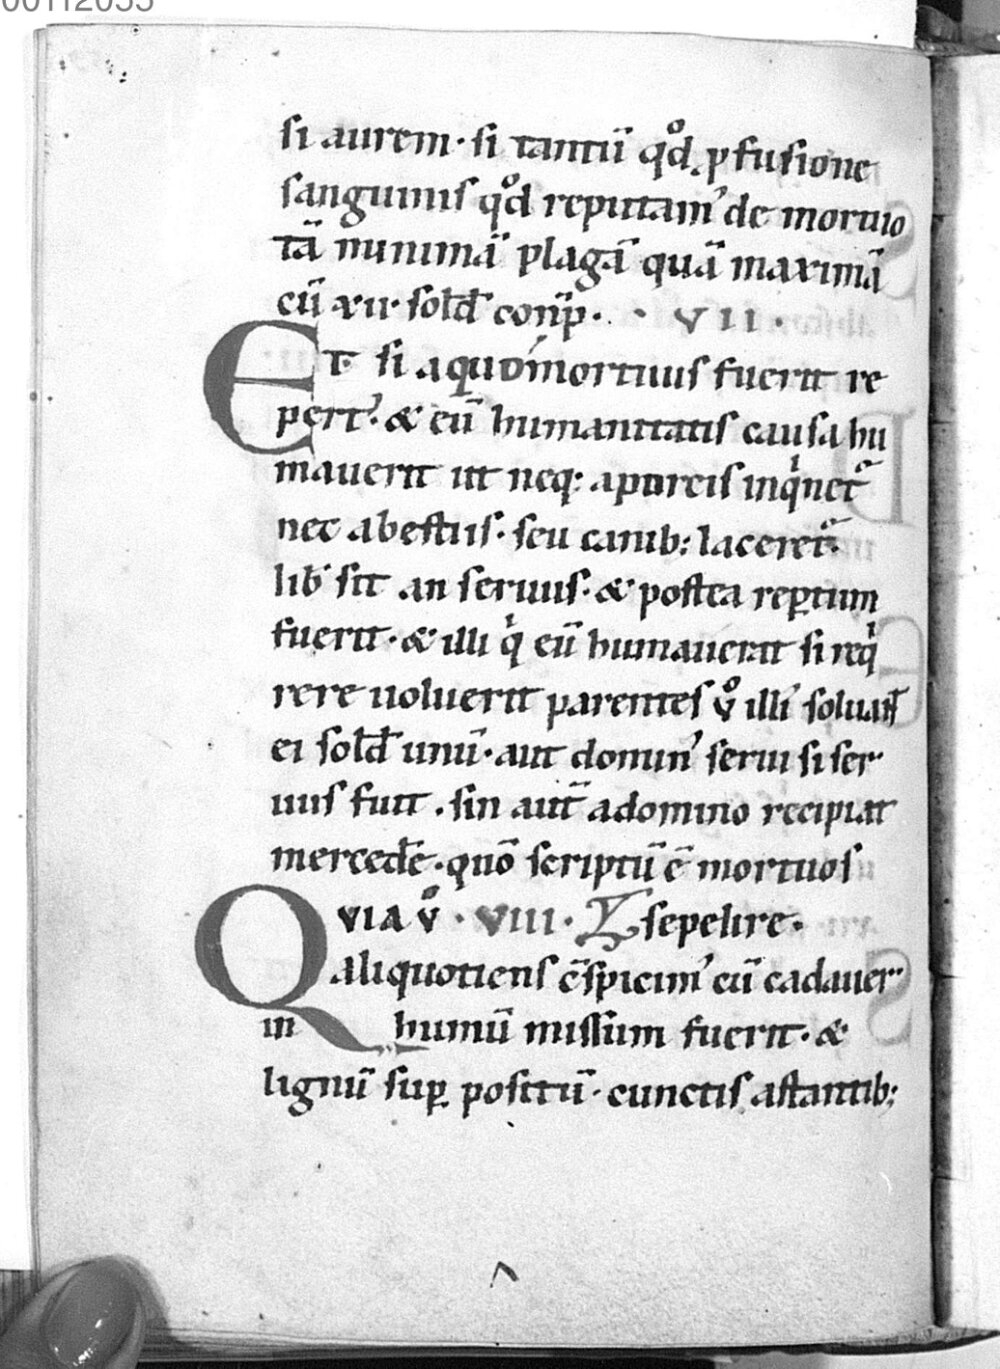 00112055
si aurem · si tantū qͦd p fusione
sanguinis qͦd reputam᾽ de mortuo
tā minimā plagā quā maximā
cū xii · sold̄ conp̄ · · VII ·
Et si aquo mortuus fuerit re
pert᾽ · & eū humanitatis causa hu
mauerit ut neq: aporcis inqͥnet᷑
nec abestiis · seu canib: laceret᷑ ·
lib̄ sit an seruus · & postea rep̱tum
fuerit · & illi qͥ eū humauerat si reqͥ
rere uoluerit parentes vͦ illi᾽ soluant̄
ei sold̄ unū · aut domin᾽ serui si ser
uus fuit · sin aut̄ adomino recipiat
mercedē · quō scriptū ē mortuos
QVIA vͦ · VIII · sepelire ·
aliquotiens c̄spicim᾽ cū cadauer
in humū missum fuerit · &
lignū sup̱ positū · cunctis astantib: